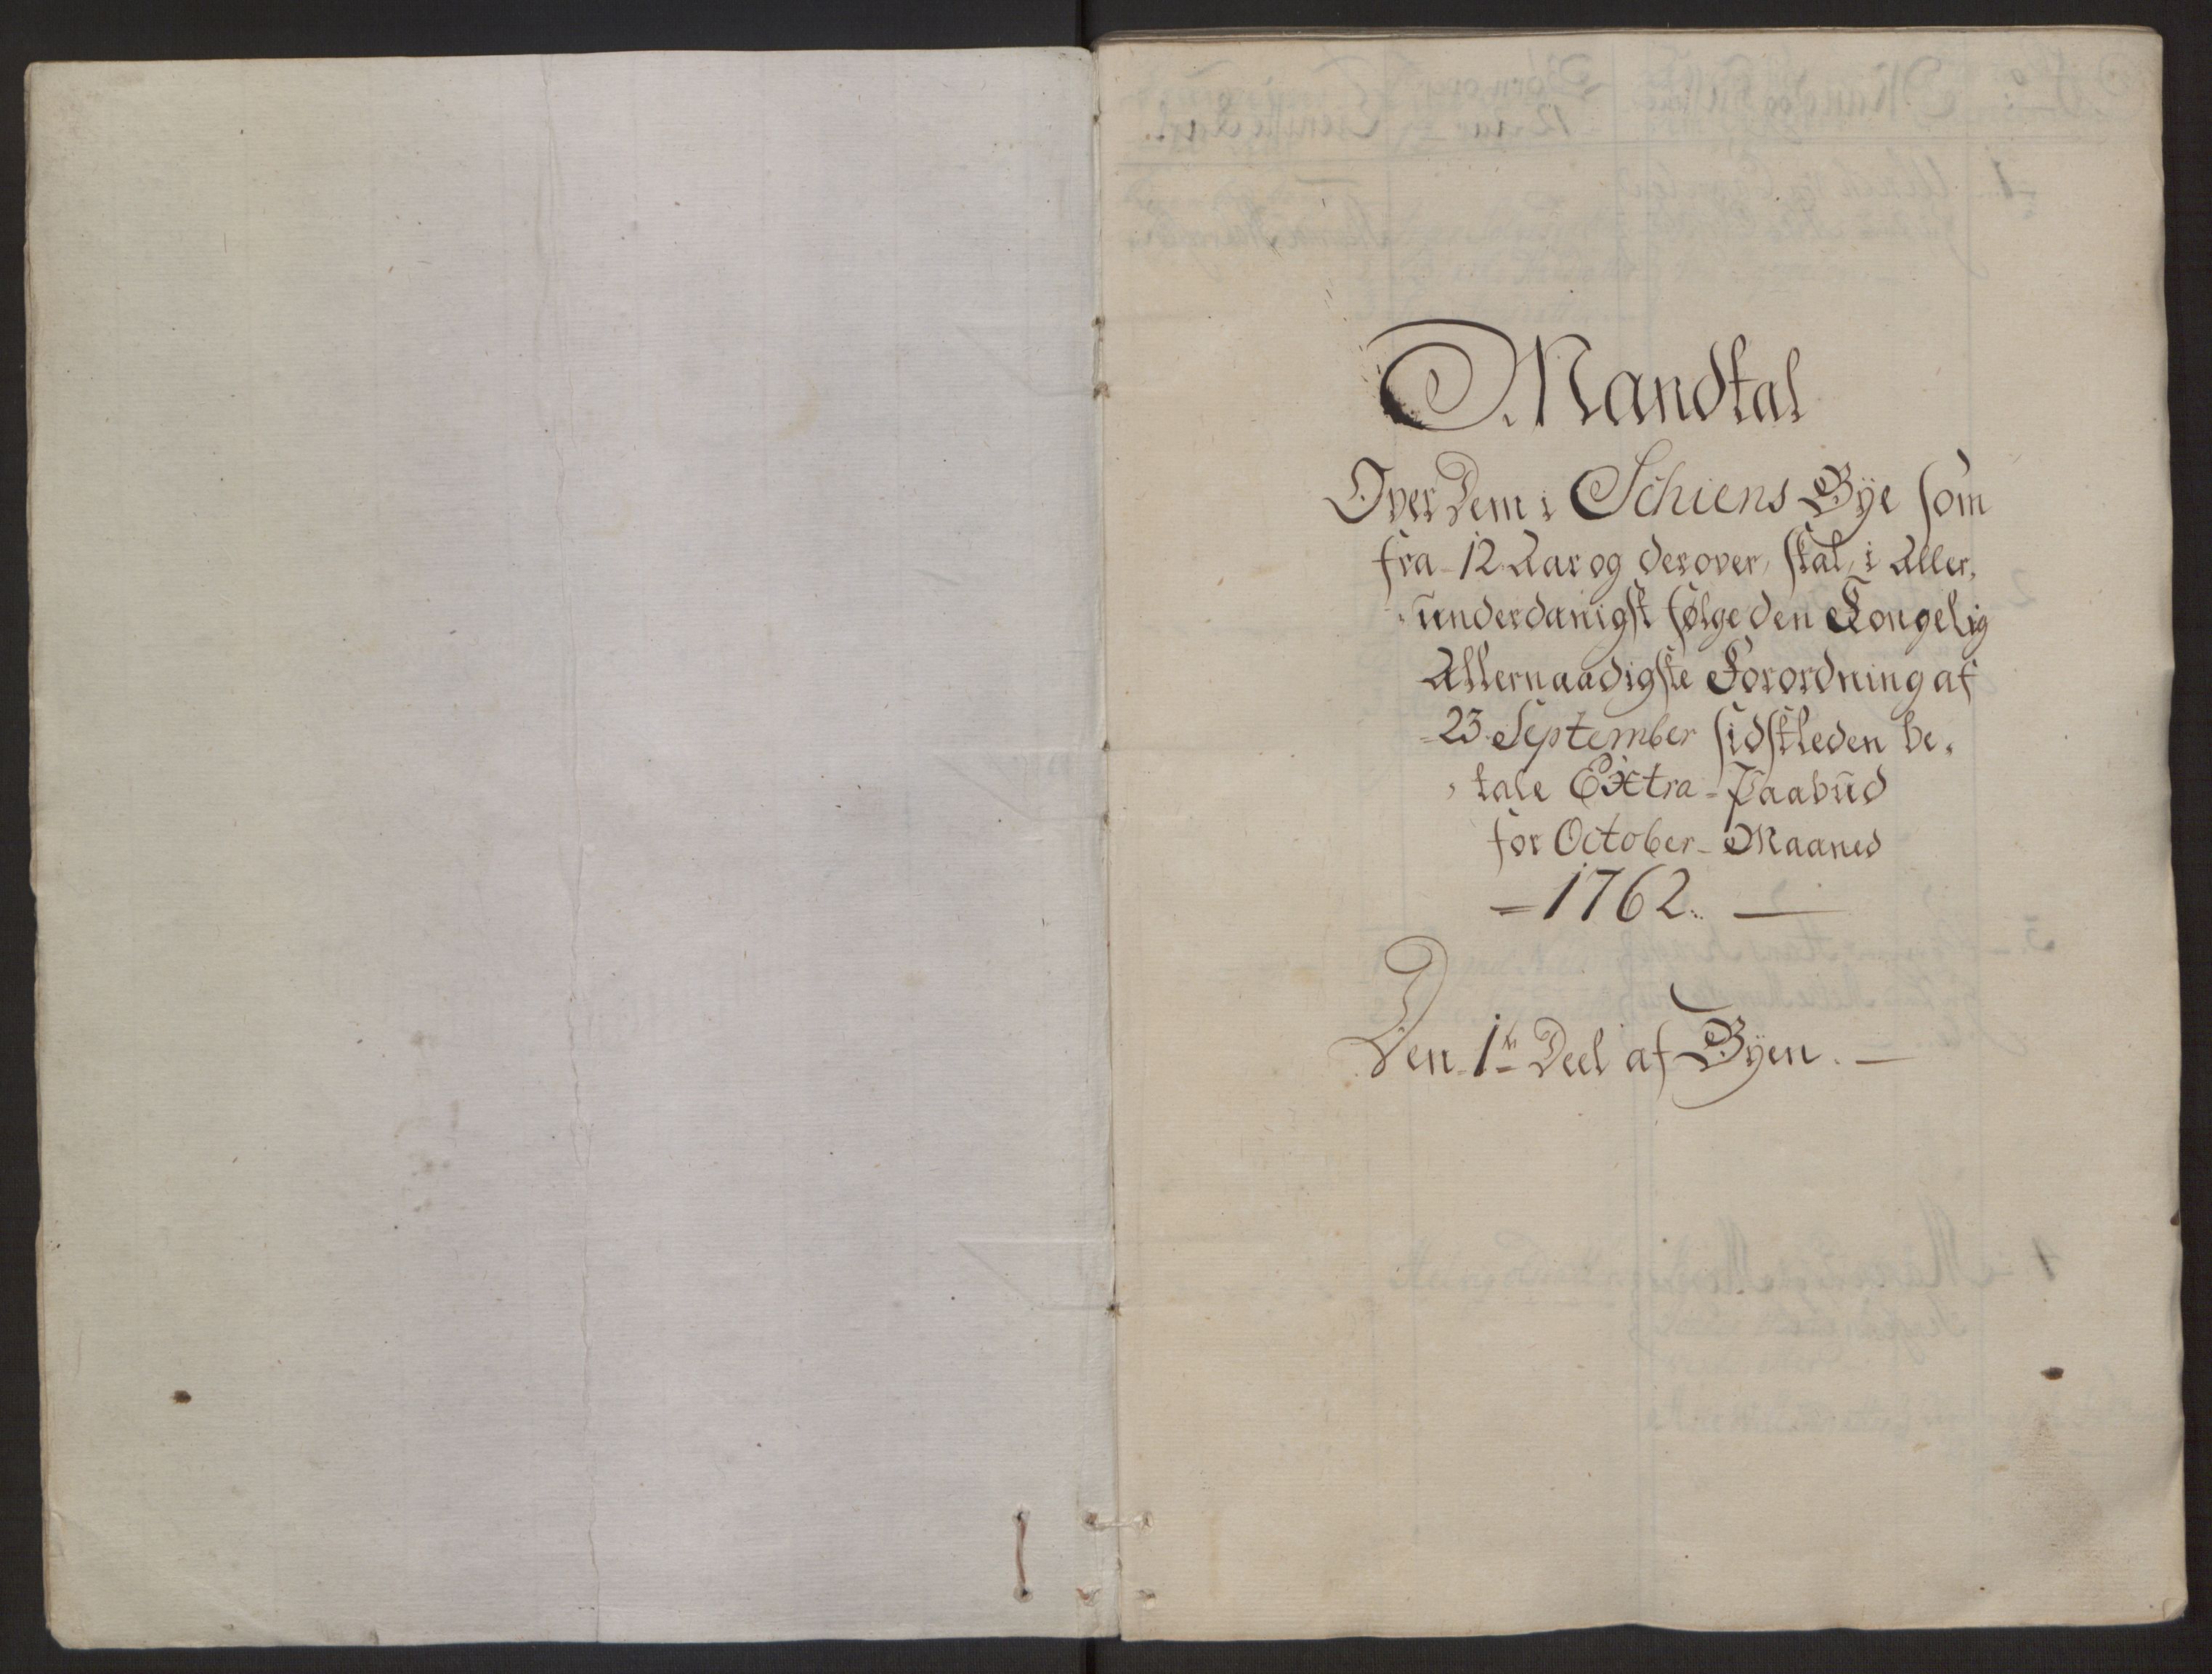 Mandtal
Over Dem i Schiens Bÿe som
fra 12 Aar og derover, skal, i Aller,
underdanigst følge den Kongelig
Allernaadigste Forordning af
23. September sidstleden be,
tale Extra-Paabud
for October-Maaned
1762.
Den 1te Deel af Bÿen.